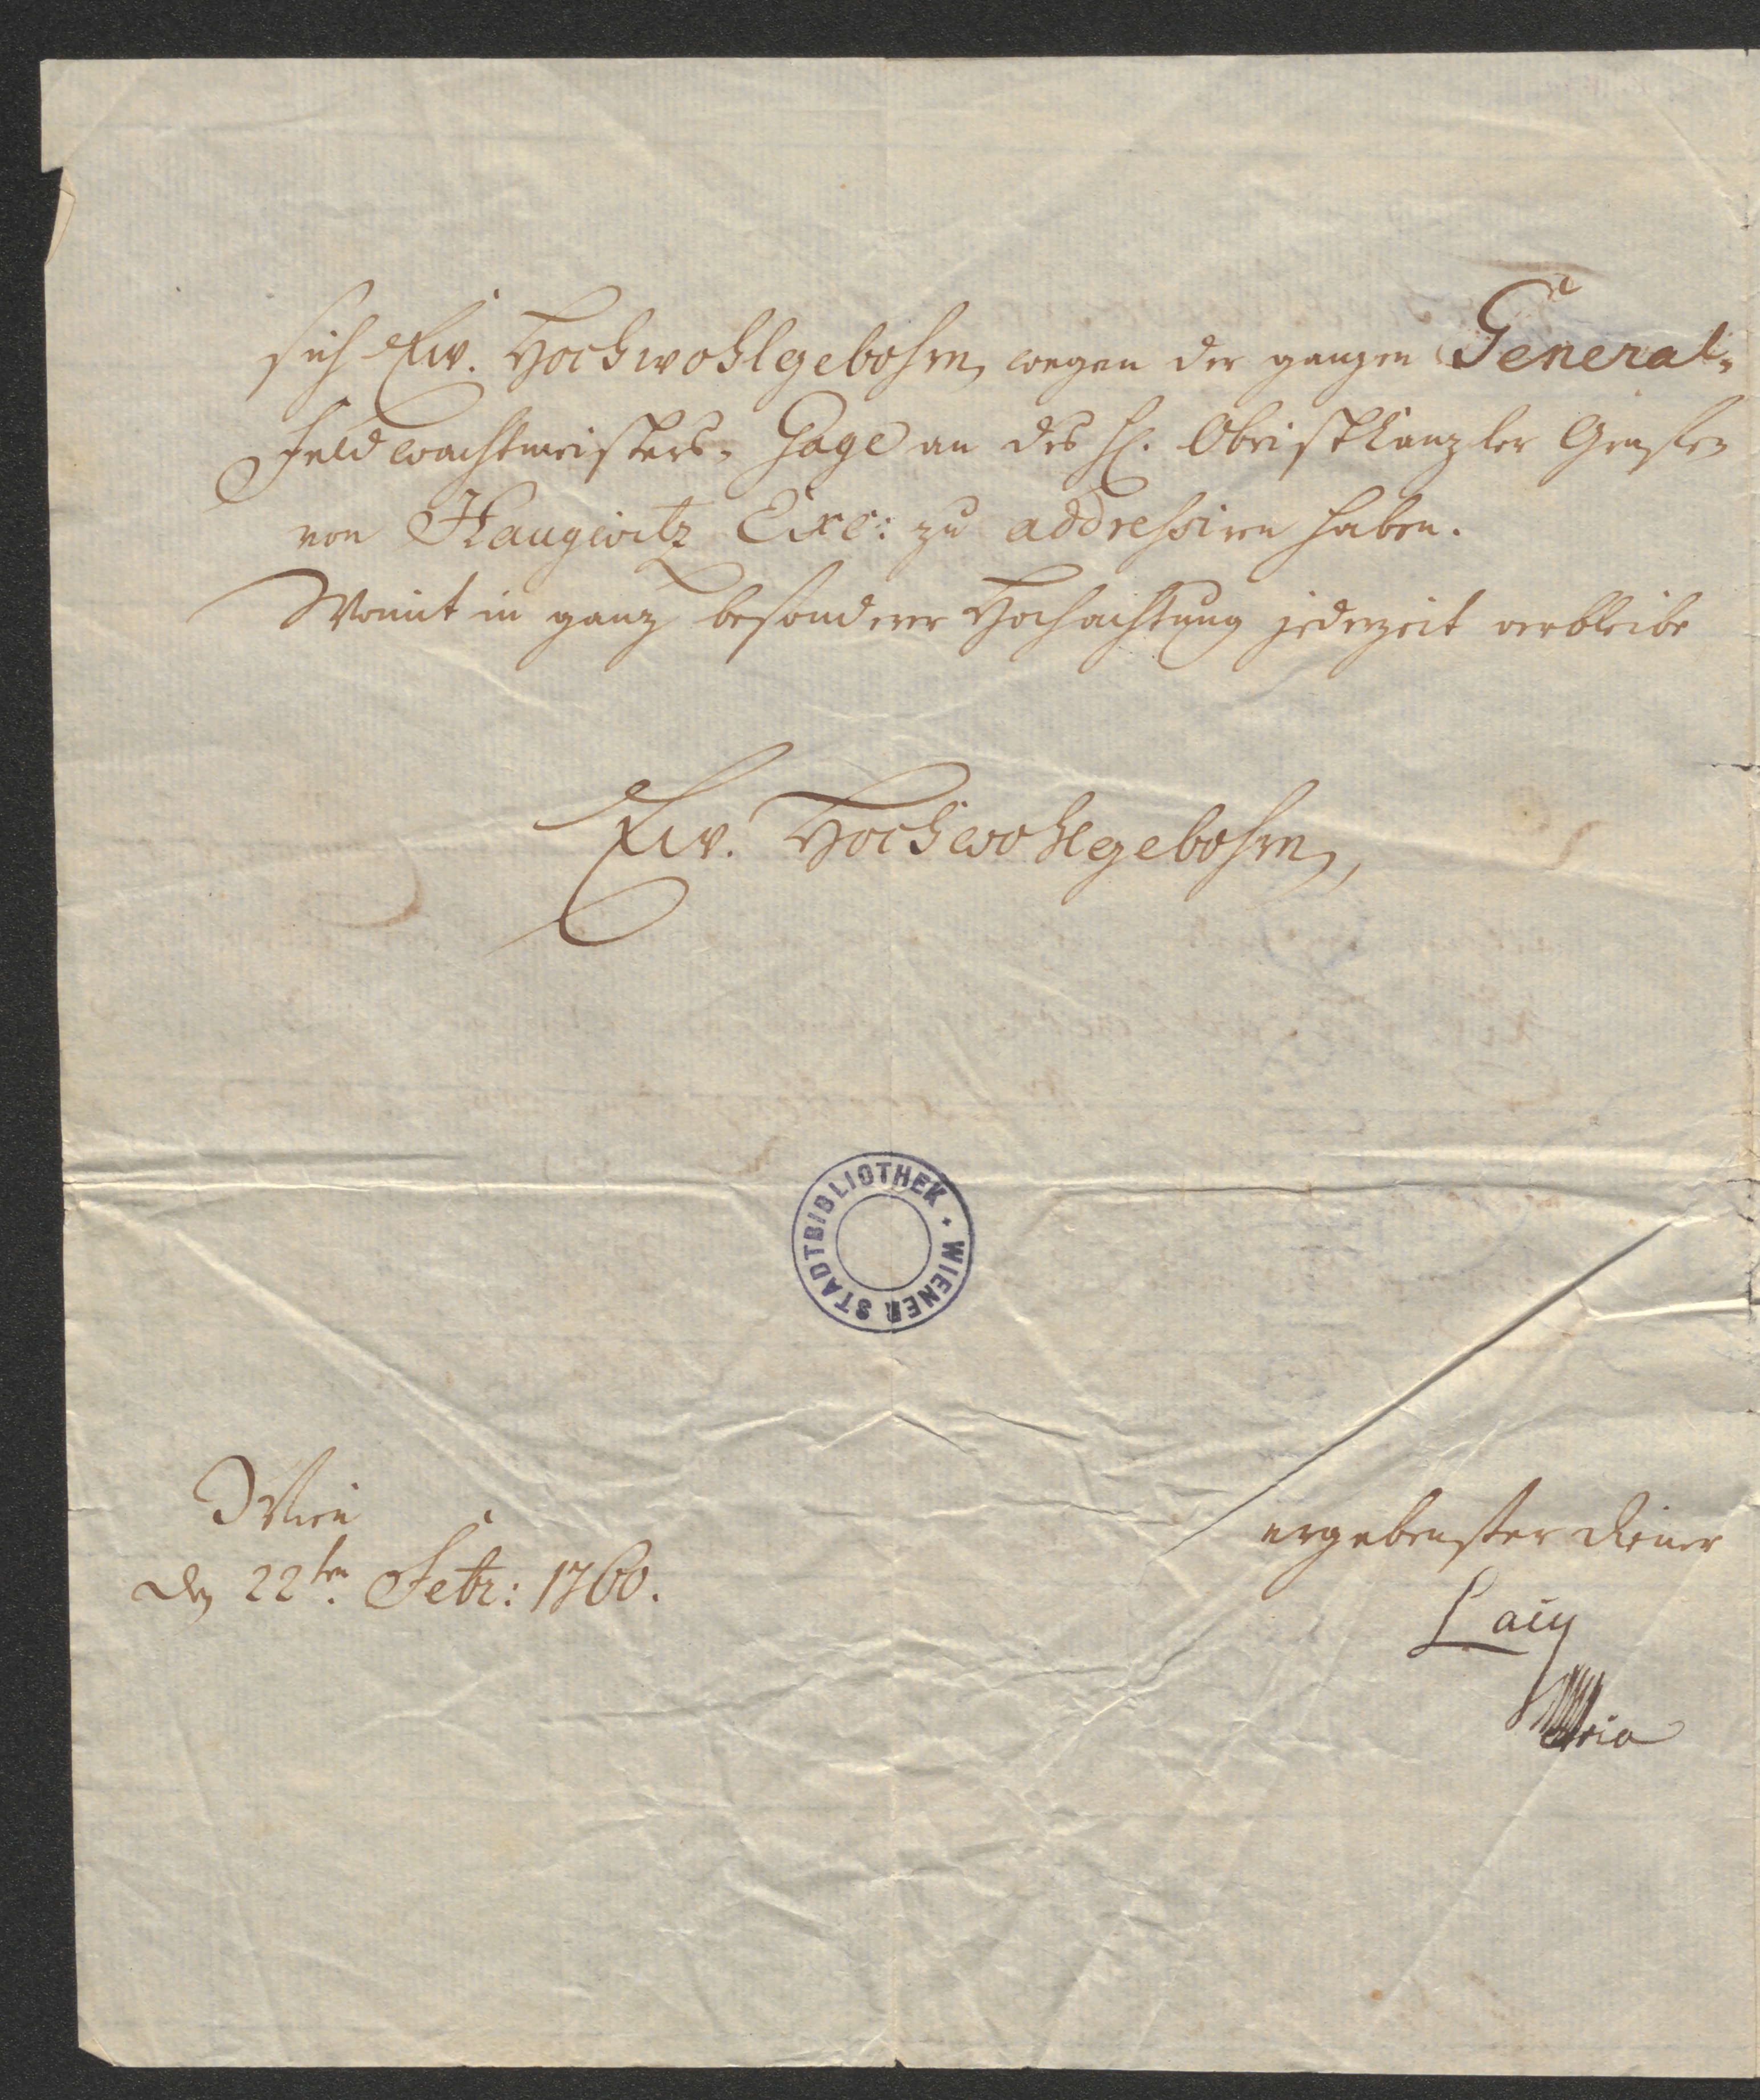 sich Euer. Hochwohlgebohrn, wegen der ganzen General-
Feldwachtmeisters- Gage an des H. Obristkanzler Grafen
von Haugwitz Exc: zu addressiren haben.
Womit in ganz besonderer Hochachtung jederzeit verbleibe
Euer. Hochwohlgebohrn,
WIENER STADTBIBLIOTHEK
Wien
den 22ten. Febr: 1760.
ergebenster diener
Lacy